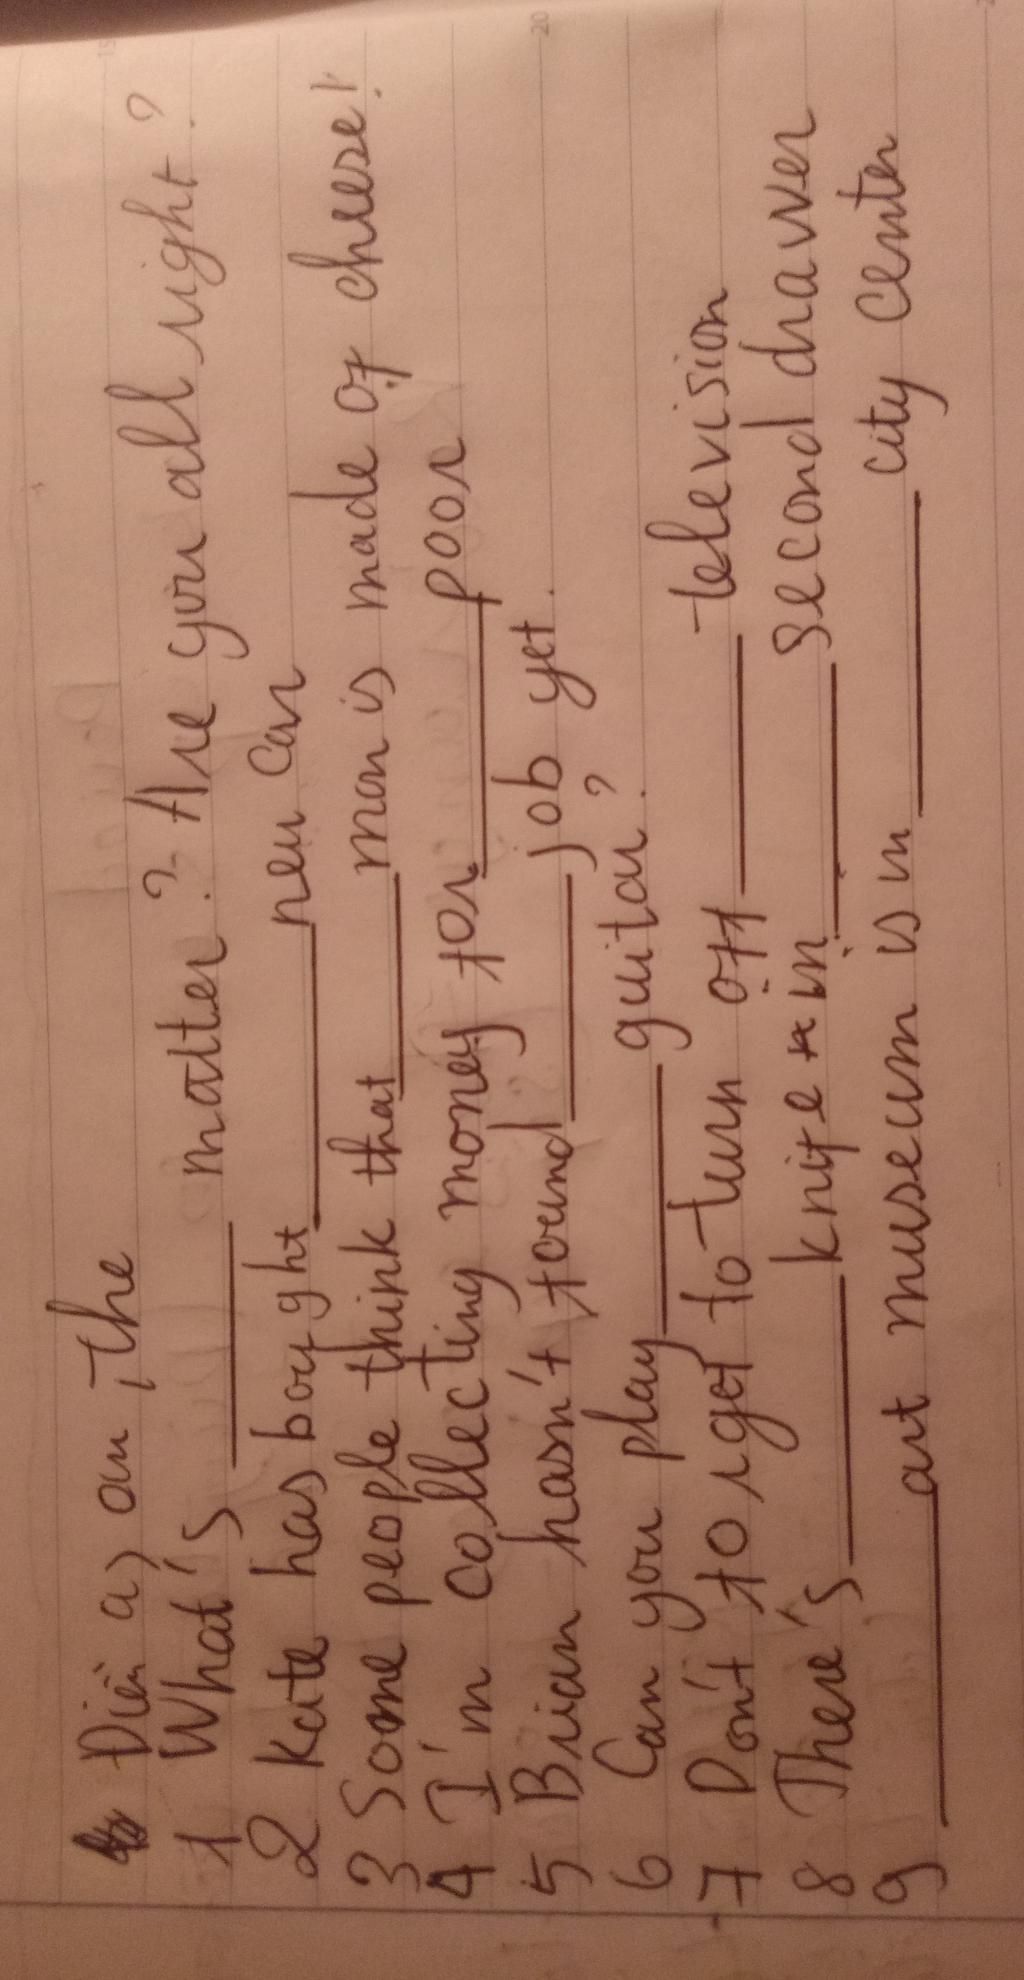 Điền a, an, the
1 What's ______ matter? Are you all right?
2 Kate has bought ______ new car
3 Some people think that ______ mon is made of cheese!
4 I'm collecting money for ______ poor
5 Brian hasn't found ______ job yet.
6 Can you play ______ guitar?
7 Don't forget to turn off ______ television
8 There's ______ knife in ______ second drawer
9 ______ art museum is in ______ city center